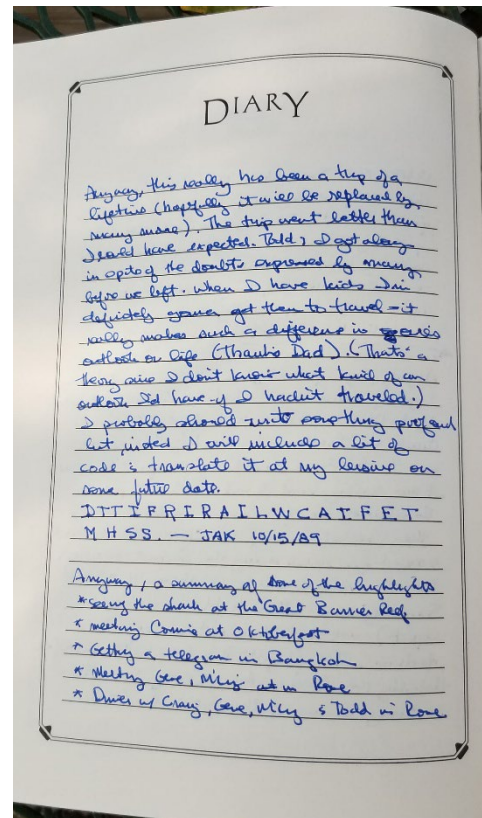 DIARY
Anyway, this really has been a trip of a
lifetime (hopefully it will be replaced by
many more). The trip went better than
I could have expected. Todd & I got along
in spite of the doubts expressed by many
before we left. When I have kids I'm
definitely gonna get them to travel - it
really makes such a difference in one's
outlook on life (Thanks Dad). (That's a
theory since I don't know what kind of an
outlook I'd have if I hadn't traveled.)
I probably should write something profound
but insted I will include a bit of
code & translate it at my leisure on
some future date.
DTTIFRIRAILWCAIFET
MHSS. - JAK 10/15/89
Anyway, a summary of some of the highlights
*seeing the shark at the Great Barrier Reef
* meeting Connie at Oktoberfest
* Getting a telegram in Bangkok
* Meeting Gene, Micky in Rome
* Dinner w/ Craig, Gene, Micky & Todd in Rome